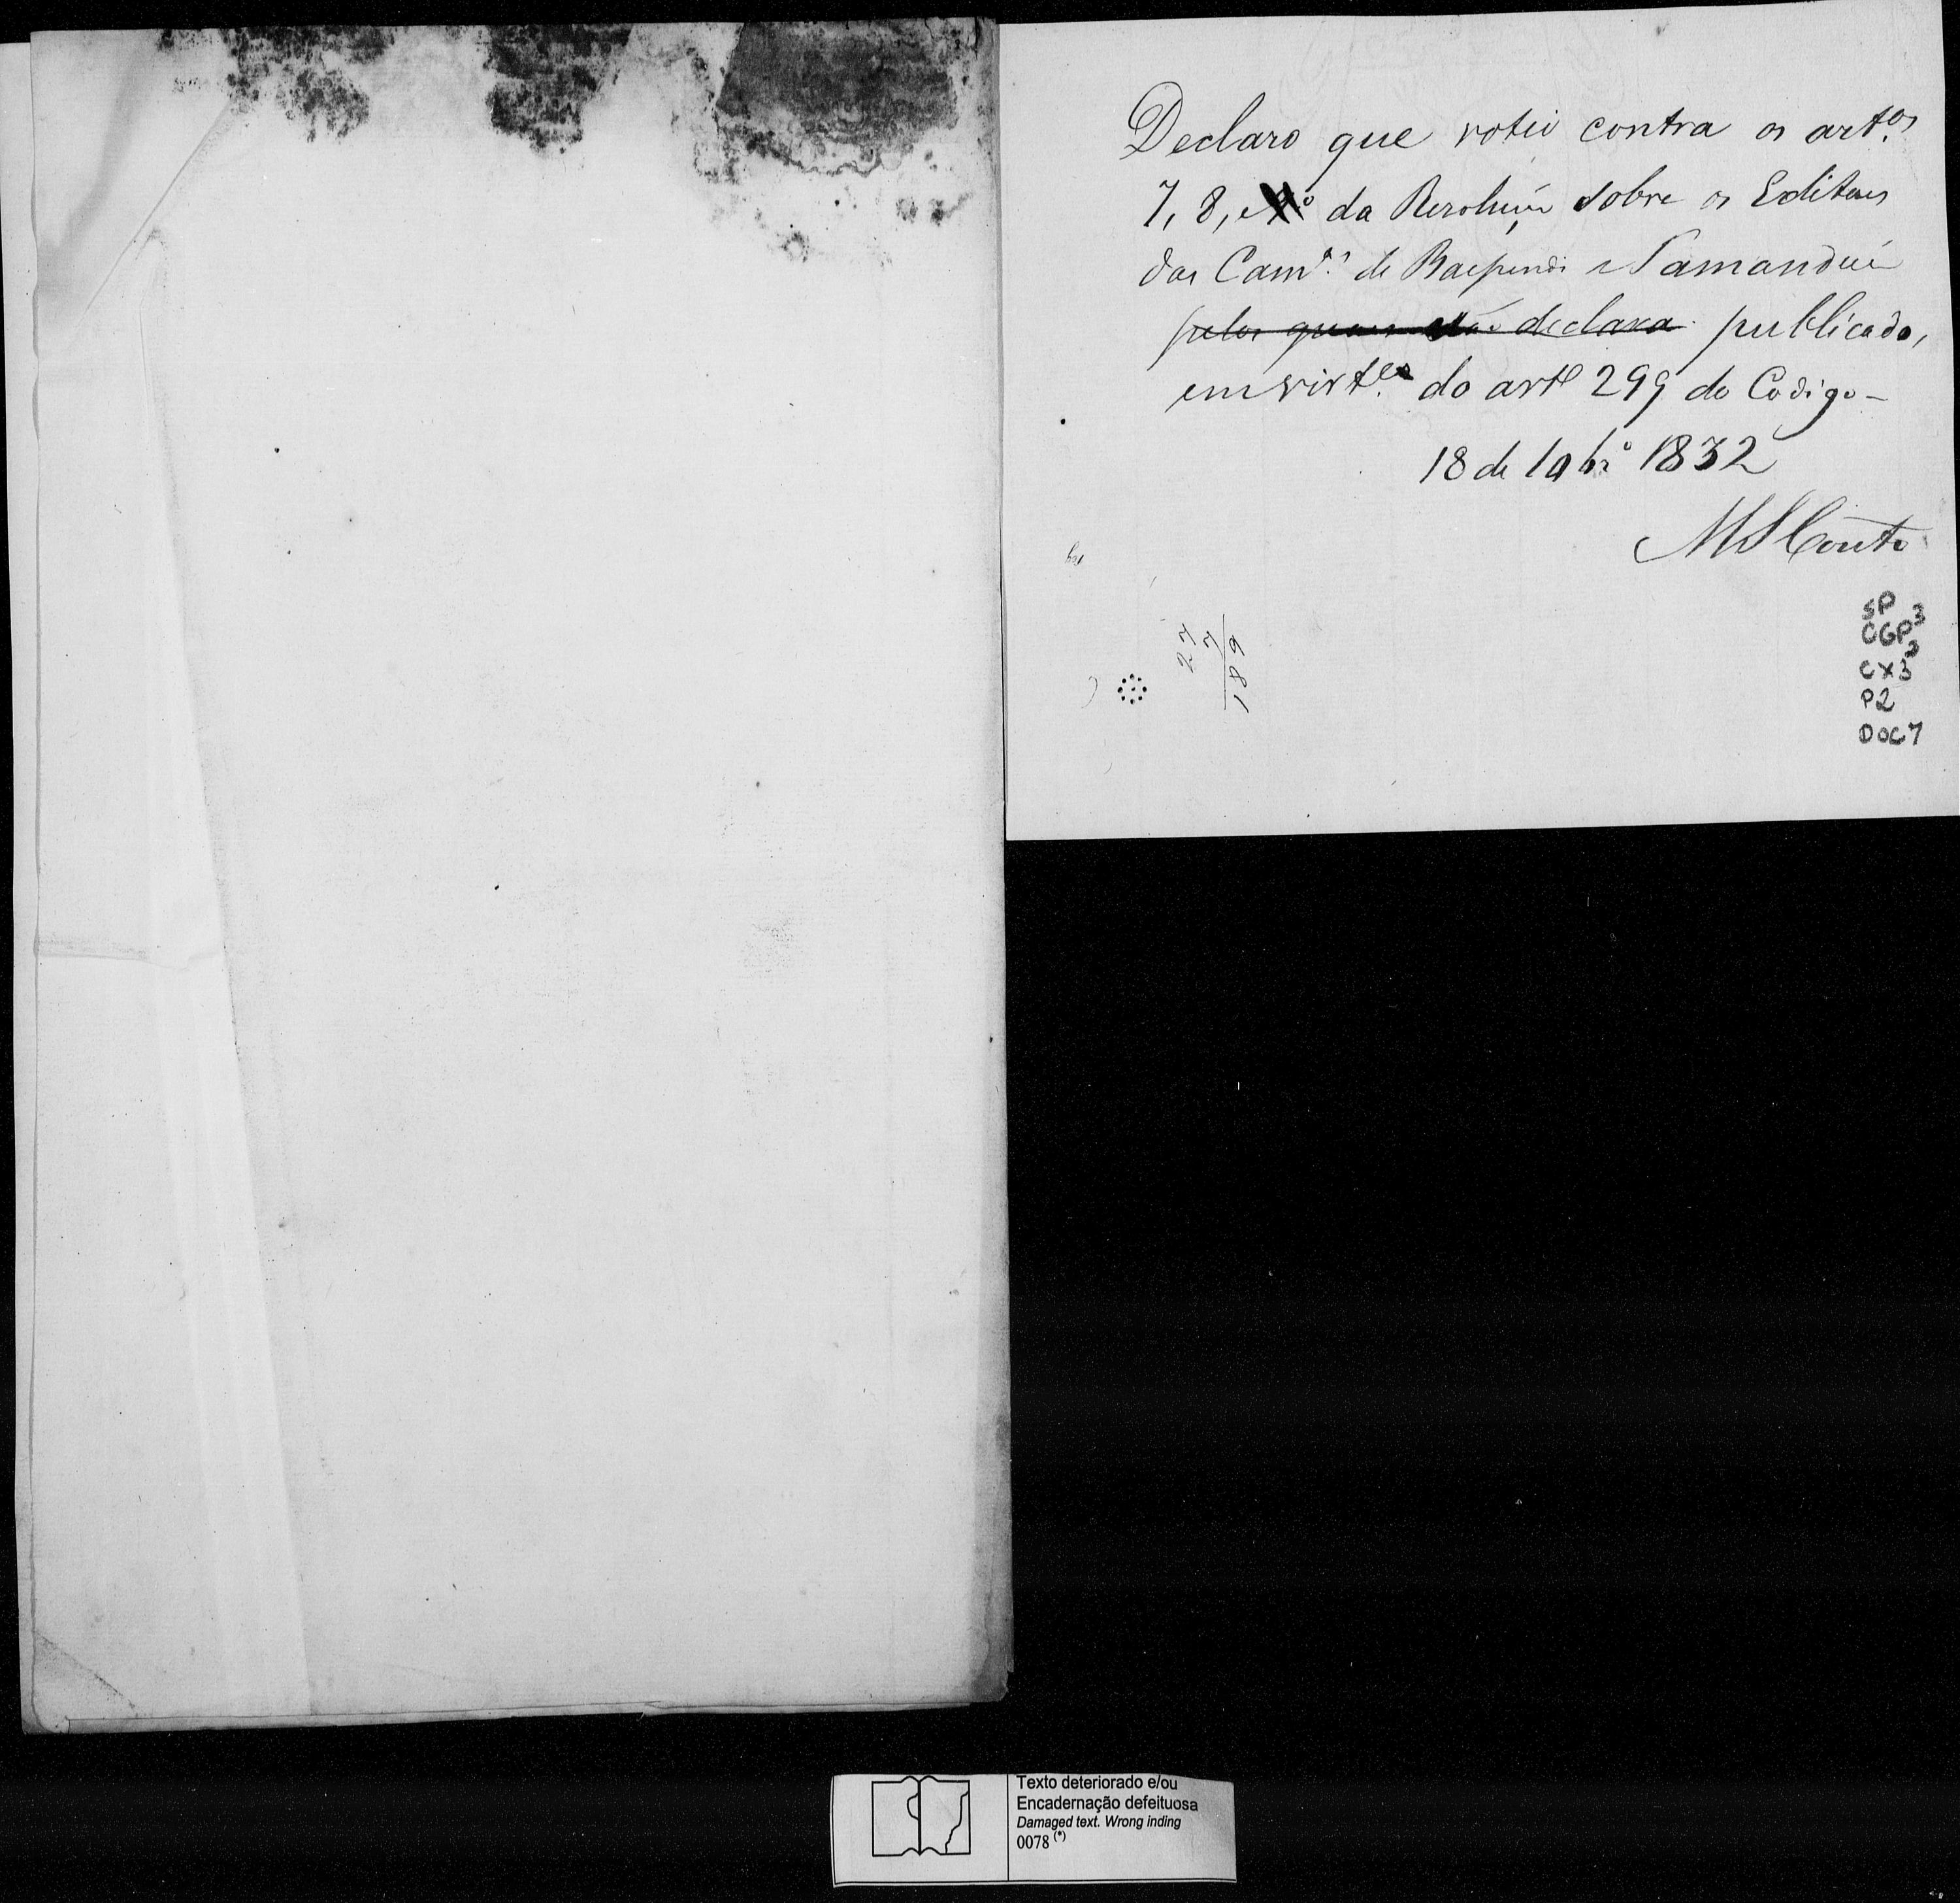 Declaro que votei contra os art.os
7, 8, e 9.º da Resolução sobre os Editaes
das Cam.as de Baependi e Tamanduá
pelos quaes declara publicado,
em virt.e do artº 299 do Codigo -
18 de 10br.º 1832
MSCouto
27
7
189
SP
CGP3
CX3
P2
DOC7
Texto deteriorado e/ou
Encadernação defeituosa
Damaged text. Wrong inding
0078 (*)